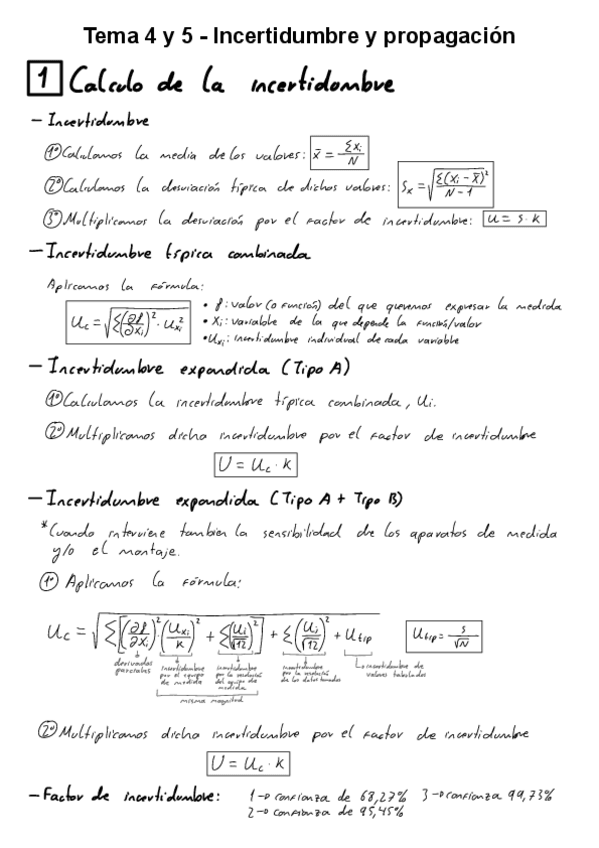 Tema 4 y 5 - Incertidumbre y propagación
1 Calculo de la incertidumbre
- Incertidumbre
1º Calculamos la media de los valores: x̄ = Σxi / N
2º Calculamos la desviación típica de dichos valores: Sx = √(Σ(xi - x̄)² / N-1)
3º Multiplicamos la desviación por el factor de incertidumbre: u = s · k
- Incertidumbre típica combinada
Aplicamos la fórmula:
Uc = √(Σ(∂f/∂xi)² · Uxi²)
• f: valor (o función) del que queremos expresar la medida
• Xi: variable de la que depende la función/valor
• Uxi: incertidumbre individual de cada variable
- Incertidumbre expandida (Tipo A)
1º Calculamos la incertidumbre típica combinada, Ui.
2º Multiplicamos dicha incertidumbre por el factor de incertidumbre
U = Uc · K
- Incertidumbre expandida (Tipo A + Tipo B)
* Cuando interviene tambien la sensibilidad de los aparatos de medida
y/o el montaje.
1º Aplicamos la fórmula:
Uc = √(Σ[(∂f/∂xi)² · (Uxi/K)² + Σ(Ui/√12)²] + Σ(Ui/√12)² + Utip
Utip = S/√N
derivadas parciales
incertidumbre por el equipo de medida
incertidumbre por la resolución del equipo de medida
incertidumbre por la resolución de los datos tomados
incertidumbre de valores tabulados
misma magnitud
2º Multiplicamos dicha incertidumbre por el factor de incertidumbre
U = Uc · K
- Factor de incertidumbre: 1 → confianza de 68,27% 3 → confianza 99,73%
2 → confianza de 95,45%